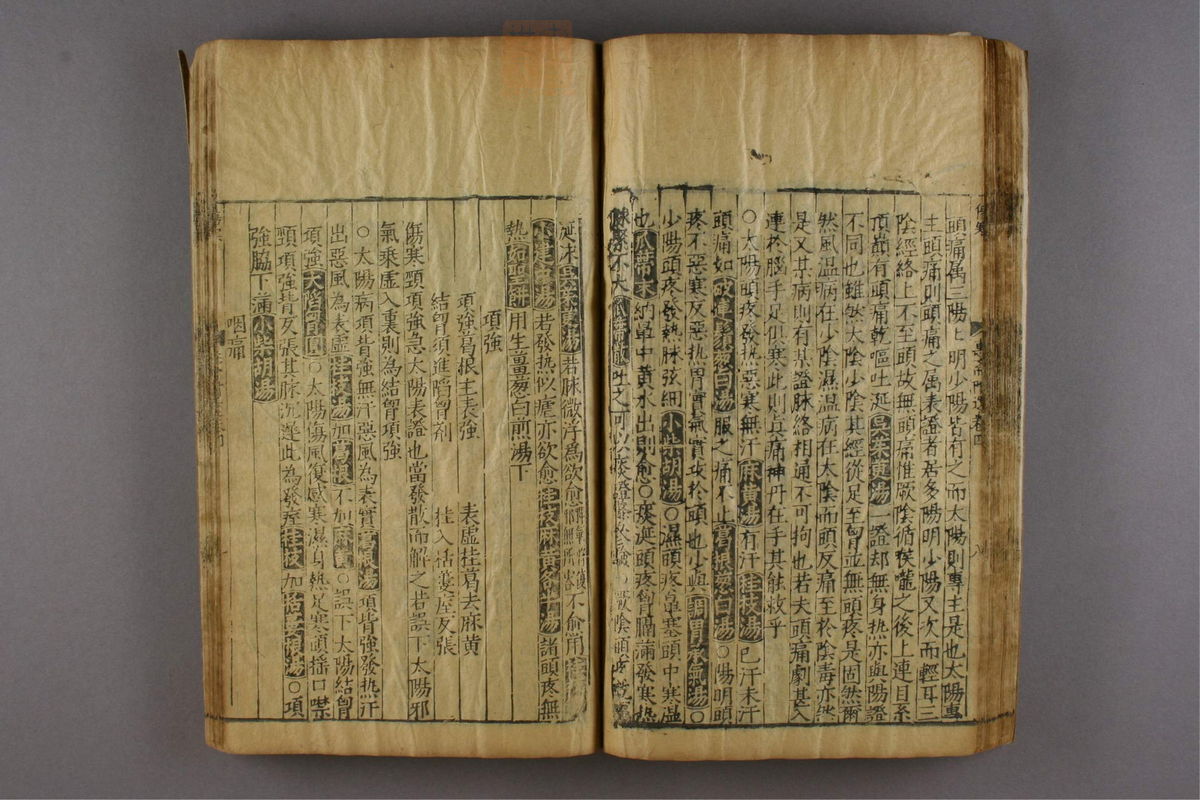 頭痛属三陽上明少陽皆有之而太陽則專主是也太陽專
主頭痛則頭痛之属表證者居多陽明少陽又次而輕耳三
陰經絡上不至頭故無頭痛惟厥陰循喉嚨之後上連目系
頂巔有頭痛乾嘔吐涎吳茱萸湯一證却無身热亦與陽證
不同也雖然太陰少陰其經從足至胷並無頭疼是固然爾
然風温病在少陰濕温病在太陰而頭反痛至於陰毒亦然
是又某病則有某證脉絡相通不可拘也若夫頭痛劇甚入
連於腦手足俱寒此則真痛神丹在手其能救乎
○太陽頭疼發热惡寒無汗麻黄湯有汗桂枝湯已汗未汗
頭痛如破連鬚葱白湯服之痛不止葛根葱白湯○陽明頭
疼不惡寒反惡热胃實氣實攻於頭也少與調胃承氣湯○
少陽頭疼發熱脉弦細小柴胡湯○濕頭疼鼻塞頭中寒湿
也瓜蒂末納鼻中黄水出則愈○痰涎頭疼胷膈滿發寒热
脉緊不大瓜蒂散吐之可以痰證○厥陰頭疼乾嘔
涎沫吳茱萸湯若脉微浮為欲愈不愈用
小建中湯若發热似瘧亦欲愈桂枝麻黄各半湯諸頭疼無
熱如聖餅用生薑葱白煎湯下
項強
項強葛根主表強 表虚桂葛去麻黄
結胷須進陷胷剤 桂入括蔞痙反張
傷寒頸項強急太陽表證也當發散而解之若誤下太陽邪
氣乘虚入裏則為結胷項強
○太陽病項背強無汗惡風為表實葛根湯項背強發热汗
出惡風為表虚桂枝湯加葛根不加麻黄○誤下太陽結胷
項強大陷胷圓○太陽傷風復感寒濕身熱足寒頭揺口噤
頸項強背反張其脉沉遲此為發痙桂枝加括蔞根湯○項
強脇下滿小柴胡湯
咽痛